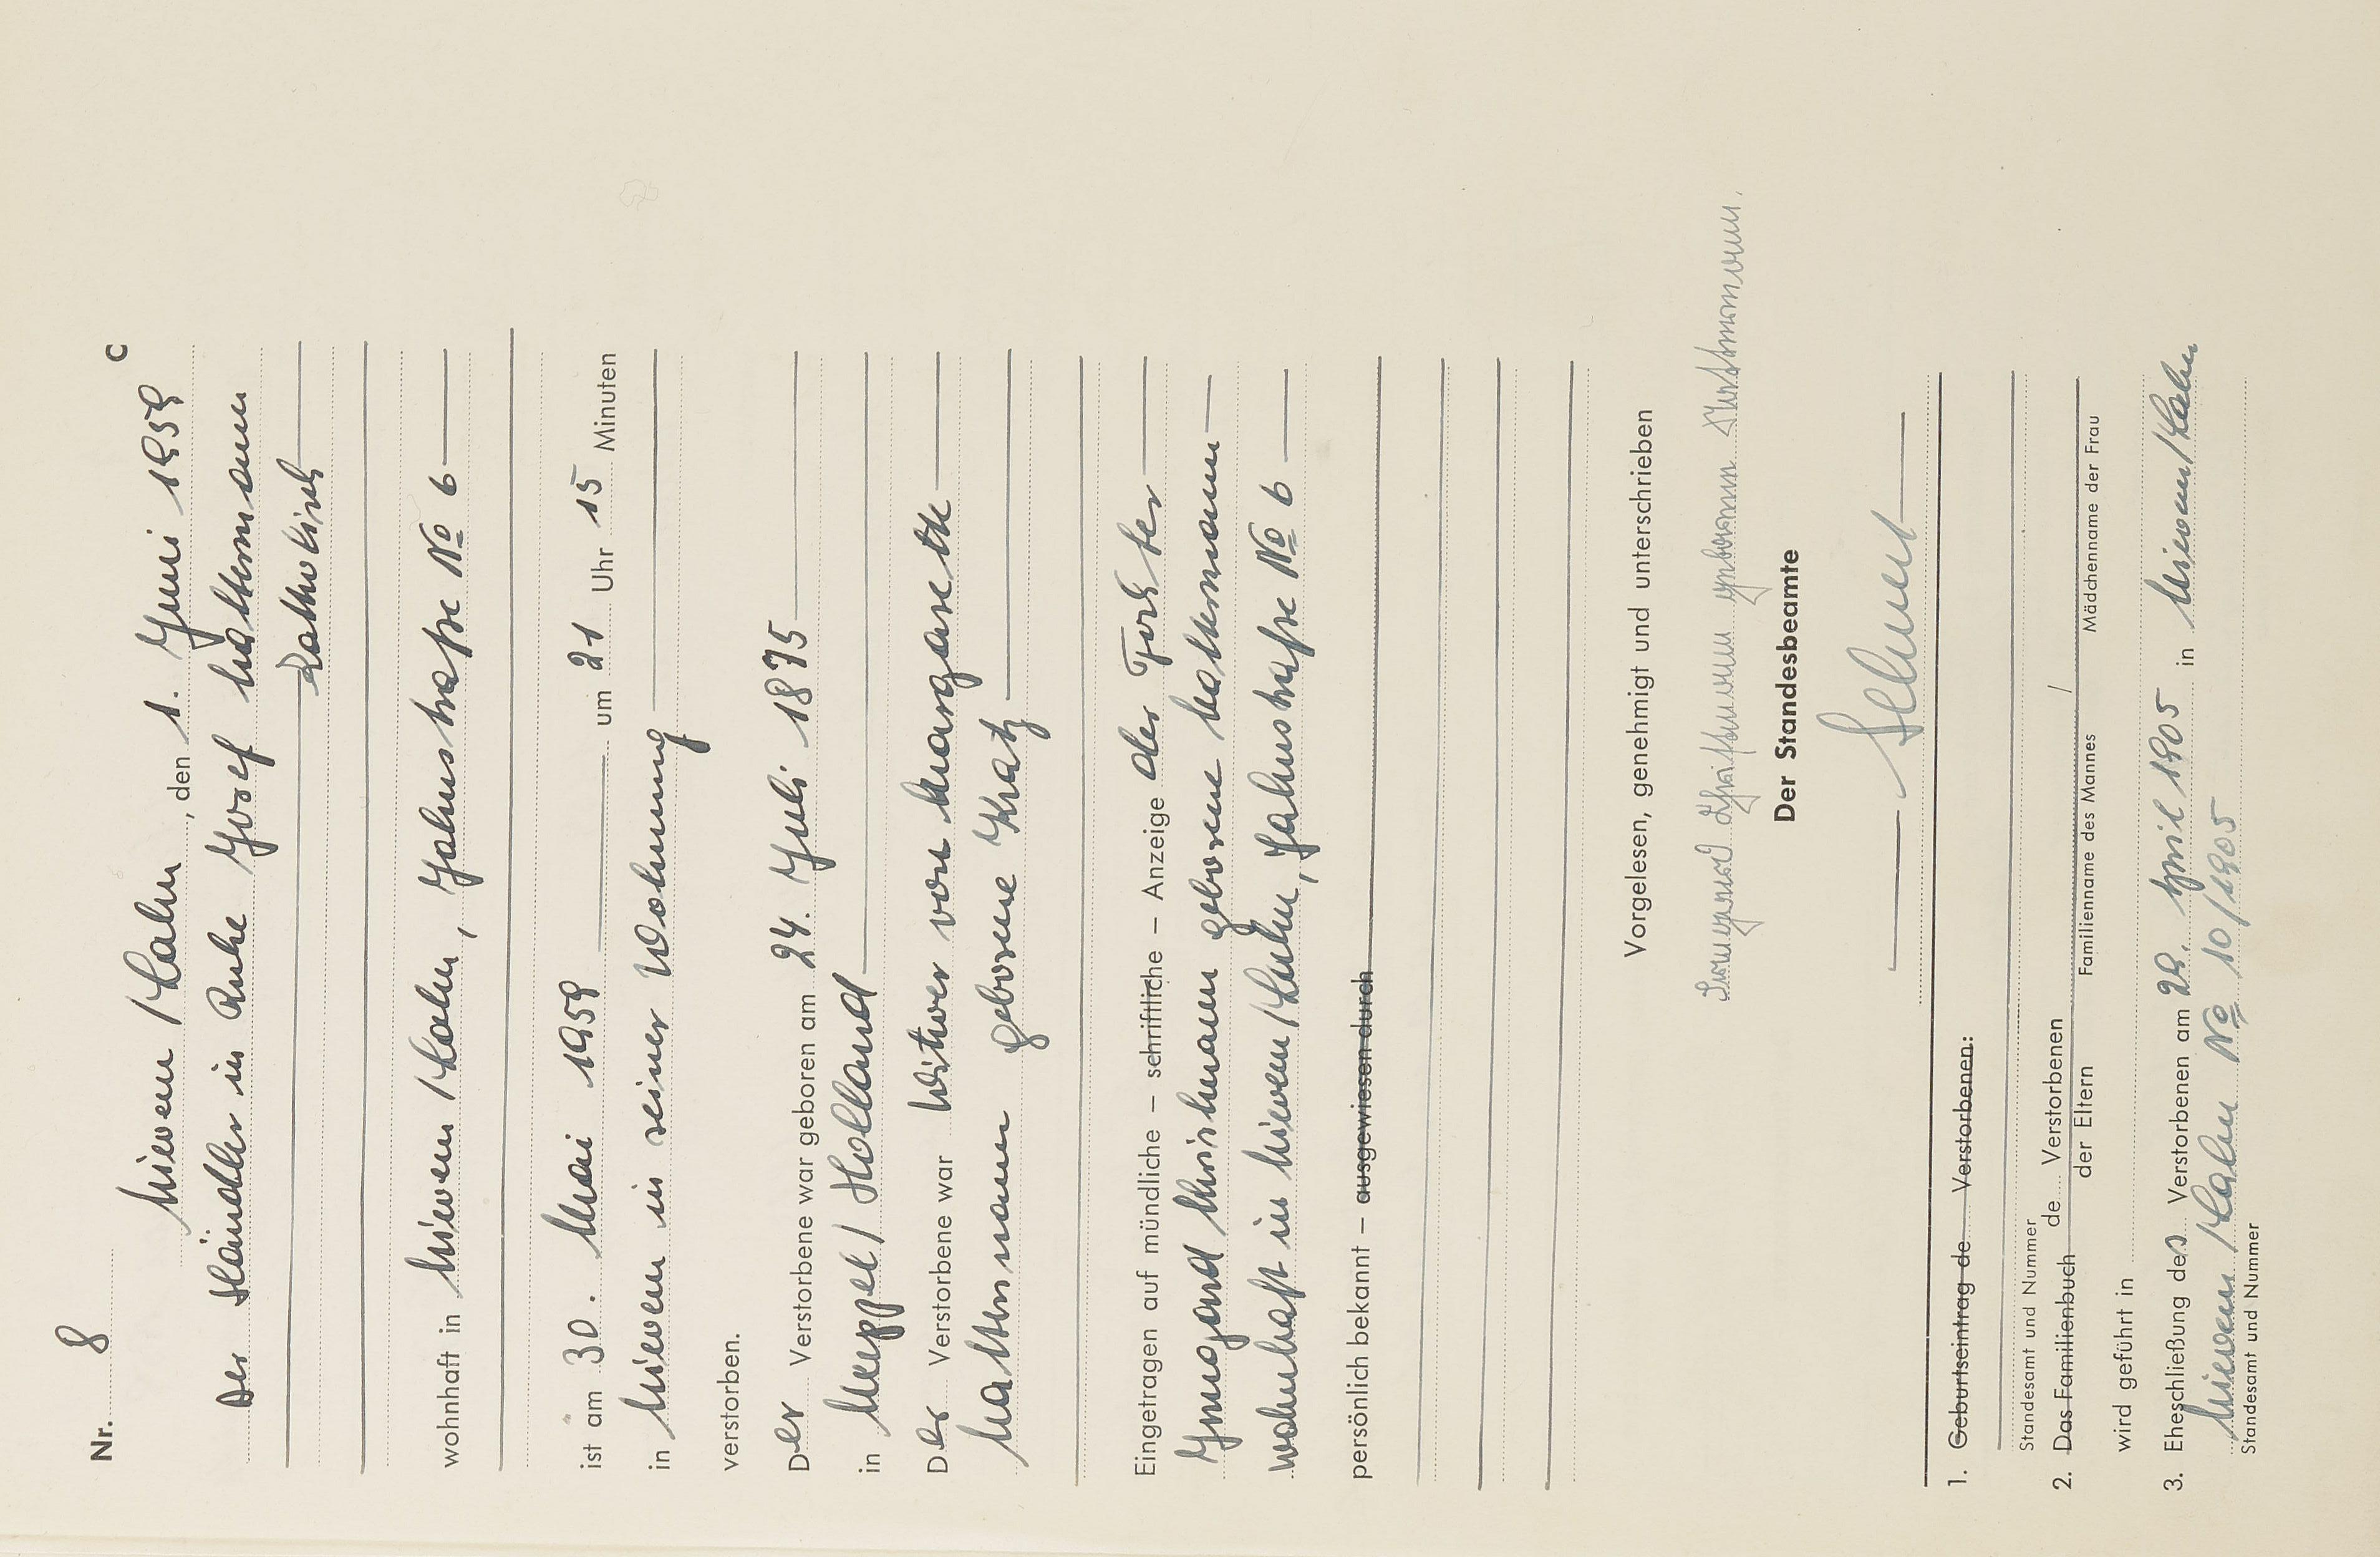 Nr. 8
C
Nievern/Lahn, den 1. Juni 1959
Der Händler in Ruhe Josef Nattermann
katholisch
wohnhaft in Nievern/Lahn, Jahnstraße No 6
ist am 30. Mai 1959 um 21 Uhr 15 Minuten
in Nievern in seiner Wohnung
verstorben.
Der Verstorbene war geboren am 24. Juli 1875
in Meppel/Holland
Der Verstorbene war Witwer von Margarethe
Nattermann geborene Kratz
Eingetragen auf mündliche – schriftliche – Anzeige der Tochter
Irmgard Christmann geborene Nattermann
wohnhaft in Nievern/Lahn, Jahnstraße No 6
persönlich bekannt – ausgewiesen durch
Vorgelesen, genehmigt und unterschrieben
Irmgard Christmann geborene Nattermann.
Der Standesbeamte
1. Geburtseintrag de Verstorbenen:
Standesamt und Nummer
2. Das Familienbuch de Verstorbenen /
der Eltern Familienname des Mannes Mädchenname der Frau
wird geführt in
3. Eheschließung des Verstorbenen am 29. April 1905 in Nievern/Lahn
Nievern/Lahn No 10/1905
Standesamt und Nummer